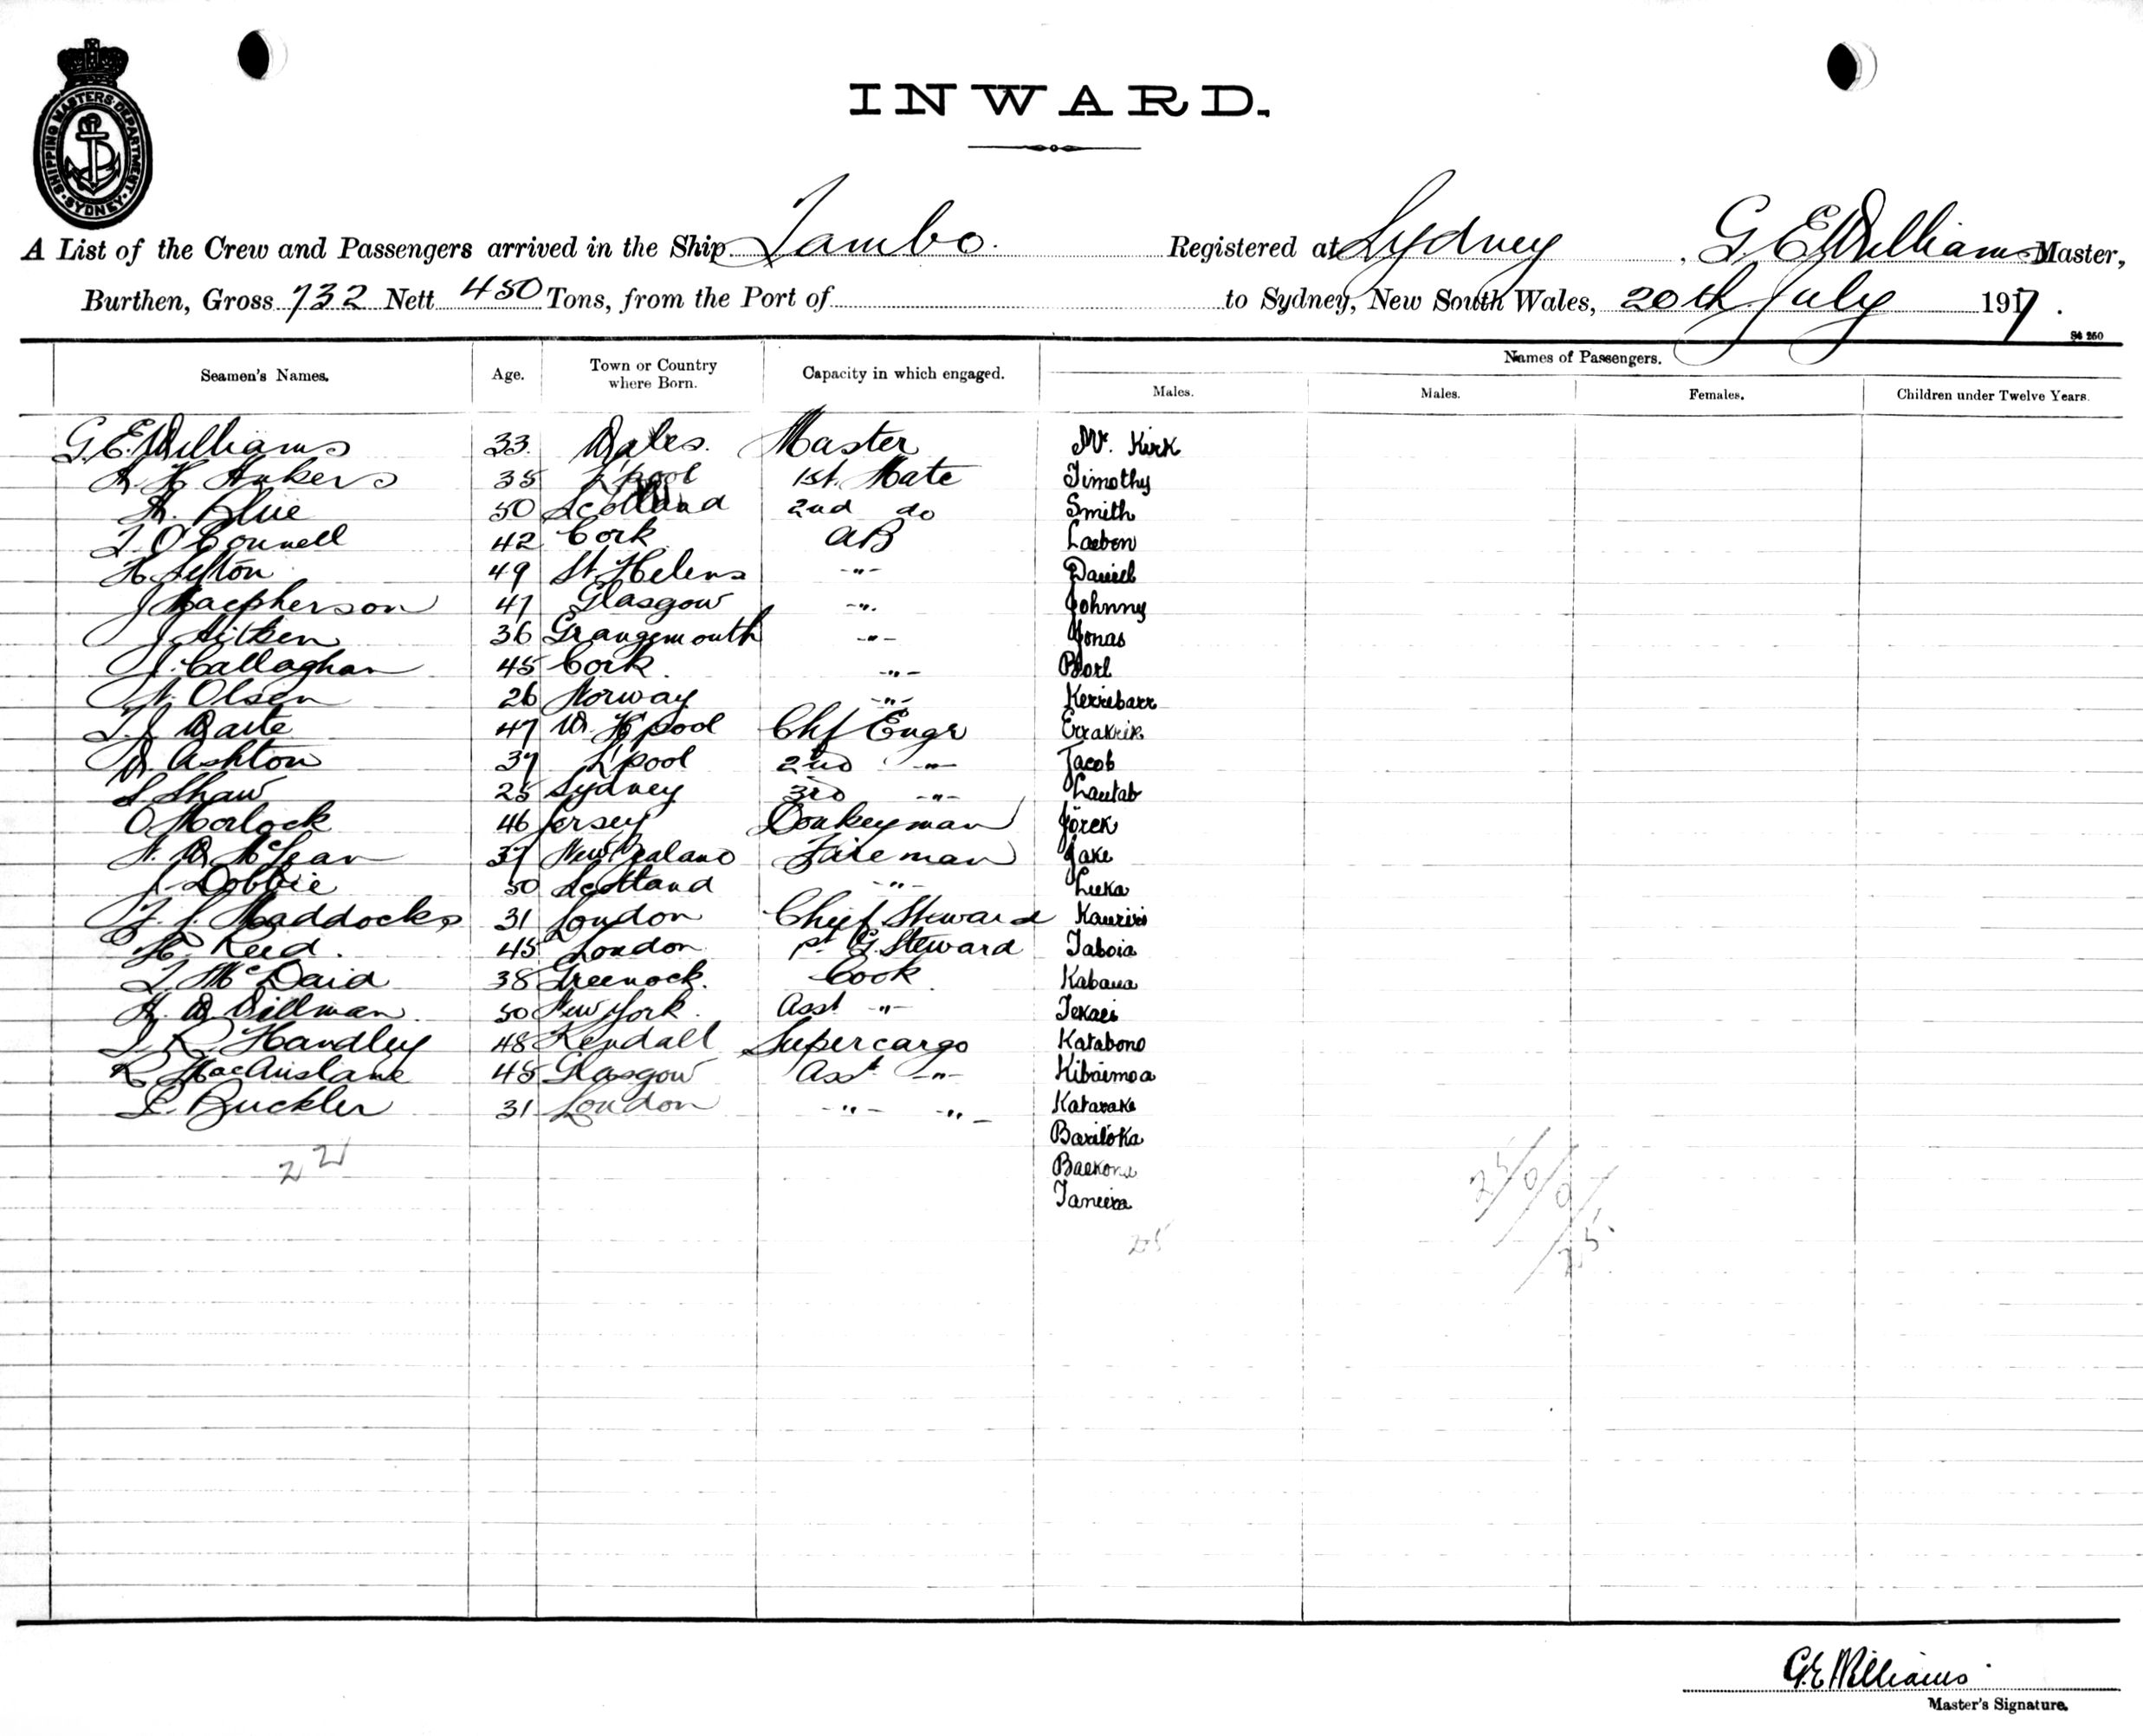 SHIPPING MASTERS DEPARTMENT · SYDNEY ·
INWARD.
A List of the Crew and Passengers arrived in the Ship Tambo. Registered at Sydney, G. E. Williams Master,
Burthen, Gross 732 Nett 450 Tons, from the Port of to Sydney, New South Wales, 20th July 1917.
S4 250
Seamen's Names. Age. Town or Country where Born. Capacity in which engaged. Names of Passengers.
Males. Males. Females. Children under Twelve Years.
G. E. Williams 33. Wales. Master Mr. Kirk
A. H. Ankers 35 L'pool 1st. Mate Timothy
A. Blue 50 Scotland 2nd do Smith
T. O'Connell 42 Cork AB Laebon
H. Sefton 49 St. Helens -"- Daniel
J Macpherson 47 Glasgow -"- Johnny
J. Aitken 36 Grangemouth -"- Jonas
J. Callaghan 45 Cork -"-
Olsen 26 Norway -"- Kerrebarr
47 W. H'pool Chf Engr Errakrik
W. Ashton 37 L'pool 2nd -"- Jacob
S. Shaw 25 Sydney 3rd -"- Lautab
O Morlock 46 Jersey Donkeyman Jorek
W. McLean 37 New Zealand Fireman Jake
J. Dobbie 50 Scotland -"- Leeka
F. J. Maddocks 31 London Chief Steward Kauriri
H. Reed. 45 London. G. Steward Taboia
T. McDaid 38 Greenock. Cook Kabaua
A. W. Willman. 50 New York. Asst -"- Tekaei
J. R. Handley 48 Kendall Supercargo Katabono
R. MacAuslane 45 Glasgow Asst -"- Kibaimoa
L. Buckler 31 London -"- -"- Katarake
Bariloka
22 Baekona
Taneira
25
25/0/0/
/25.
G. E. Williams
Master's Signature.